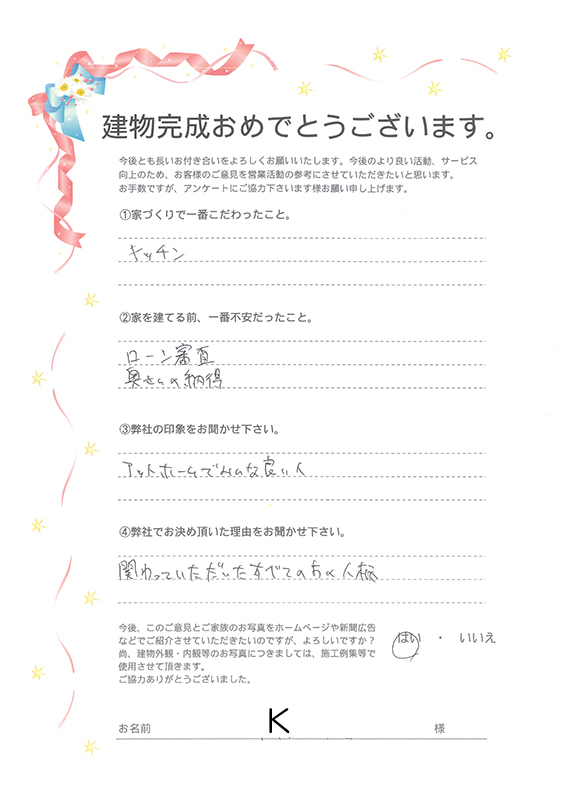 建物完成おめでとうございます。
今後とも長いお付き合いをよろしくお願いいたします。今後のより良い活動、サービス
向上のため、お客様のご意見を営業活動の参考にさせていただきたいと思います。
お手数ですが、アンケートにご協力下さいます様お願い申し上げます。
①家づくりで一番こだわったこと。
キッチン
②家を建てる前、一番不安だったこと。
ローン審査
奥さんの納得
③弊社の印象をお聞かせ下さい。
アットホームでみんな良い人
④弊社でお決め頂いた理由をお聞かせ下さい。
関わっていただいたすべての 人様
今後、このご意見とご家族のお写真をホームページや新聞広告
などでご紹介させていただきたいのですが、よろしいですか？
はい ・ いいえ
尚、建物外観・内観等のお写真につきましては、施工例集等で
使用させて頂きます。
ご協力ありがとうございました。
お名前 K 様